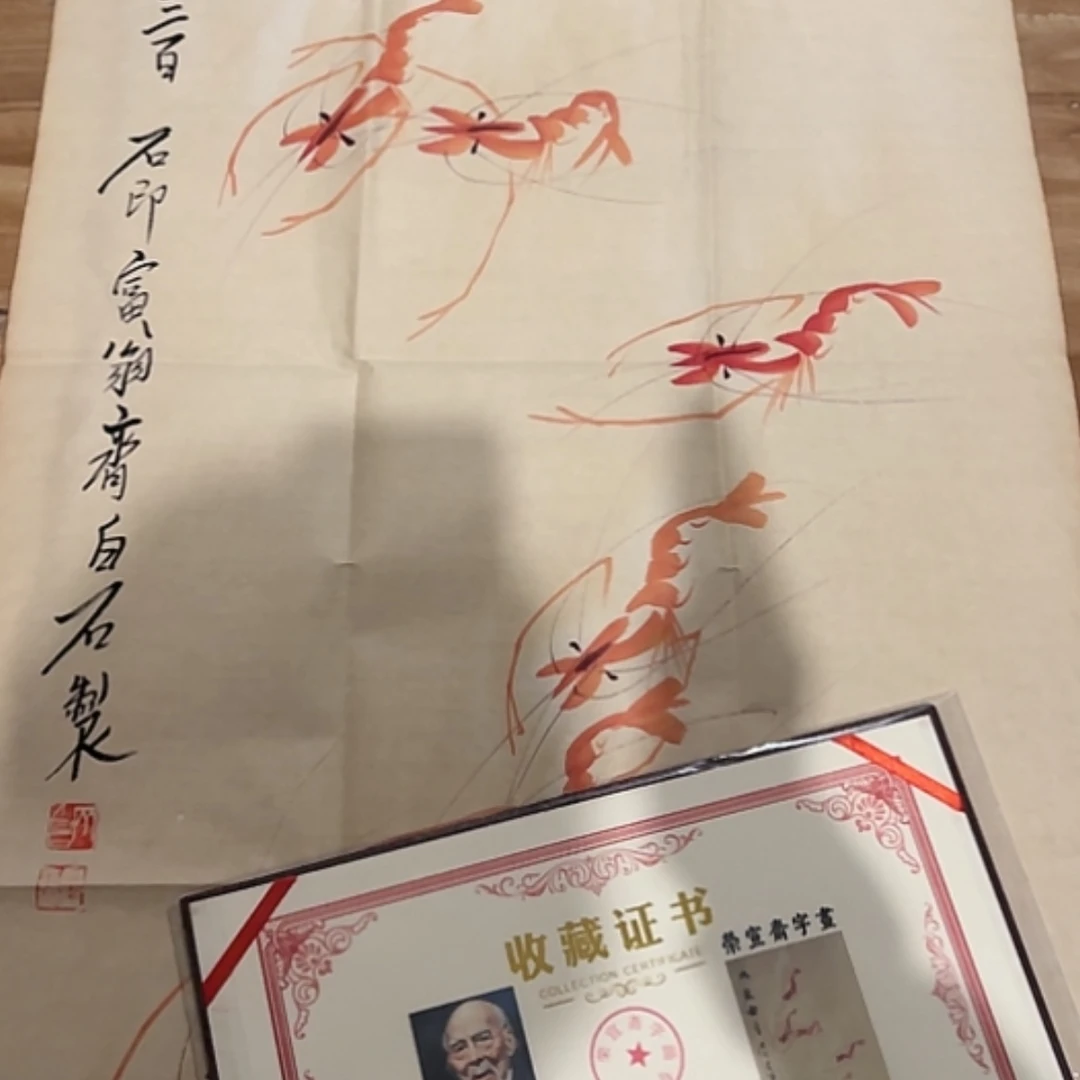 三百石印富翁齊白石製
收藏证书
COLLECTION CERTIFICATE
榮宣齋字畫